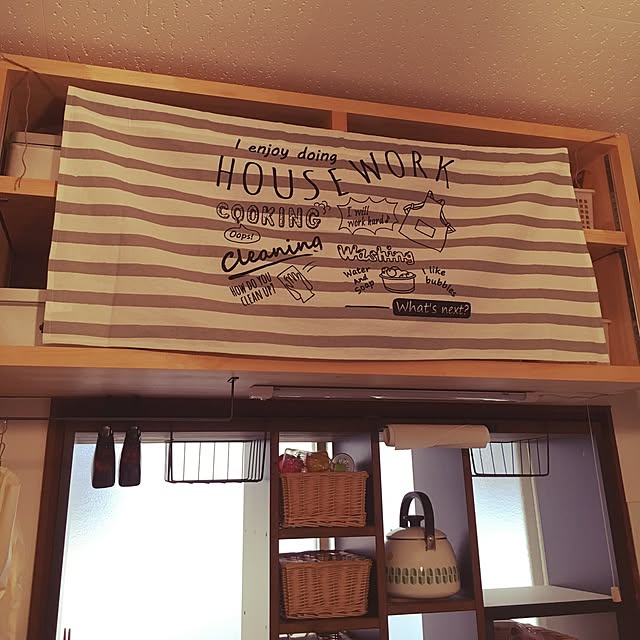 I enjoy doing
HOUSEWORK
COOKING
Oops!
I will
work hard♪
Cleaning
HOW DO YOU
CLEAN UP?
Washing
Water
and
Soap
I like
bubbles
What's next?